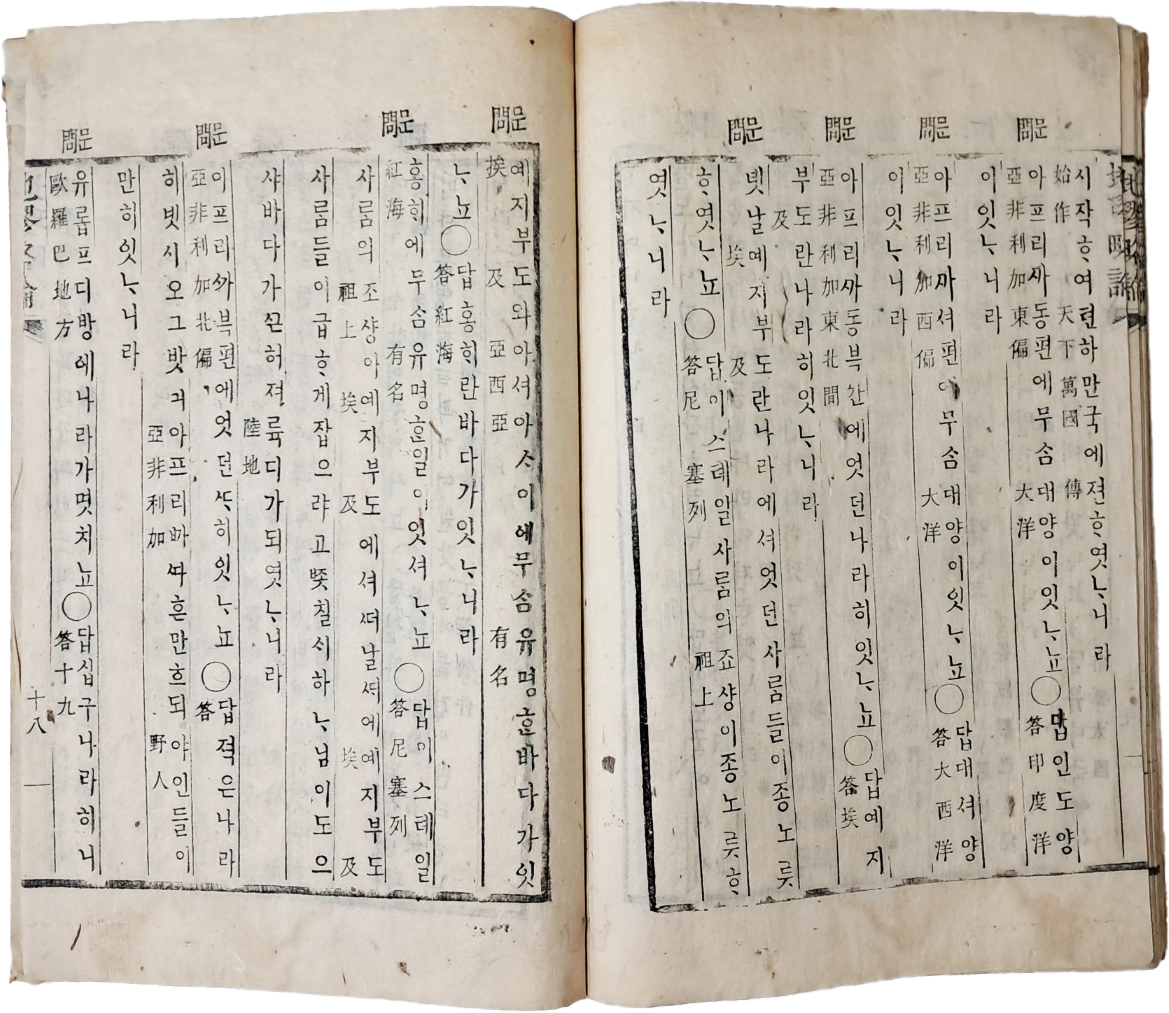 地璆略論
시작ᄒᆞ여텬하만국에젼ᄒᆞ엿ᄂᆞ니라
始作 天下萬國 傳
문
問
아프리ᄭᅡ동편에무ᄉᆞᆷ대양이잇ᄂᆞ뇨○답인도양
亞非利加東偏 大洋 答印度洋
이잇ᄂᆞ니라
문
問
아프리ᄭᅡ셔편에무ᄉᆞᆷ대양이잇ᄂᆞ뇨○답대셔양
亞非利加西偏 大洋 答大西洋
이잇ᄂᆞ니라
문
問
아프리ᄭᅡ동븍간에엇던나라히잇ᄂᆞ뇨○답예지
亞非利加東北間 答埃
부도란나라히잇ᄂᆞ니라
及
문
問
녯날예지부도란나라에셔엇던사ᄅᆞᆷ들이종노릇
埃 及
ᄒᆞ엿ᄂᆞ뇨○답이스레일사ᄅᆞᆷ의죠샹이종노릇ᄒᆞ
答尼塞列 祖上
엿ᄂᆞ니라
문
問
예지부도와아셔아ᄉᆞ이에무ᄉᆞᆷ유명ᄒᆞᆫ바다가잇
埃及 亞西亞 有名
ᄂᆞ뇨○답홍ᄒᆡ란바다가잇ᄂᆞ니라
答紅海
문
問
홍ᄒᆡ에무ᄉᆞᆷ유명ᄒᆞᆫ일이잇셔ᄂᆞ뇨○답이스레일
紅海 有名 答尼塞列
사ᄅᆞᆷ의조샹이예지부도에셔ᄯᅥ날ᄯᅢ에예지부도
祖上 埃及 埃及
사ᄅᆞᆷ들이급ᄒᆞ게잡으랴고ᄶᅩᆺ칠시하ᄂᆞ님이도으
샤바다가ᄯᅳᆫ허져륙디가되엿ᄂᆞ니라
陸地
문
問
아프리ᄭᅡ븍편에엇던ᄯᅡ히잇ᄂᆞ뇨○답젹은나라
亞非利加北偏 答
히빗시오그밧긔아프리ᄭᅡᄯᅡ흔만흐되야인들이
亞非利加 野人
만히잇ᄂᆞ니라
문
問
유롭프디방에나라가몃치뇨○답십구나라히니
歐羅巴地方 答十九
地璆略論
十八